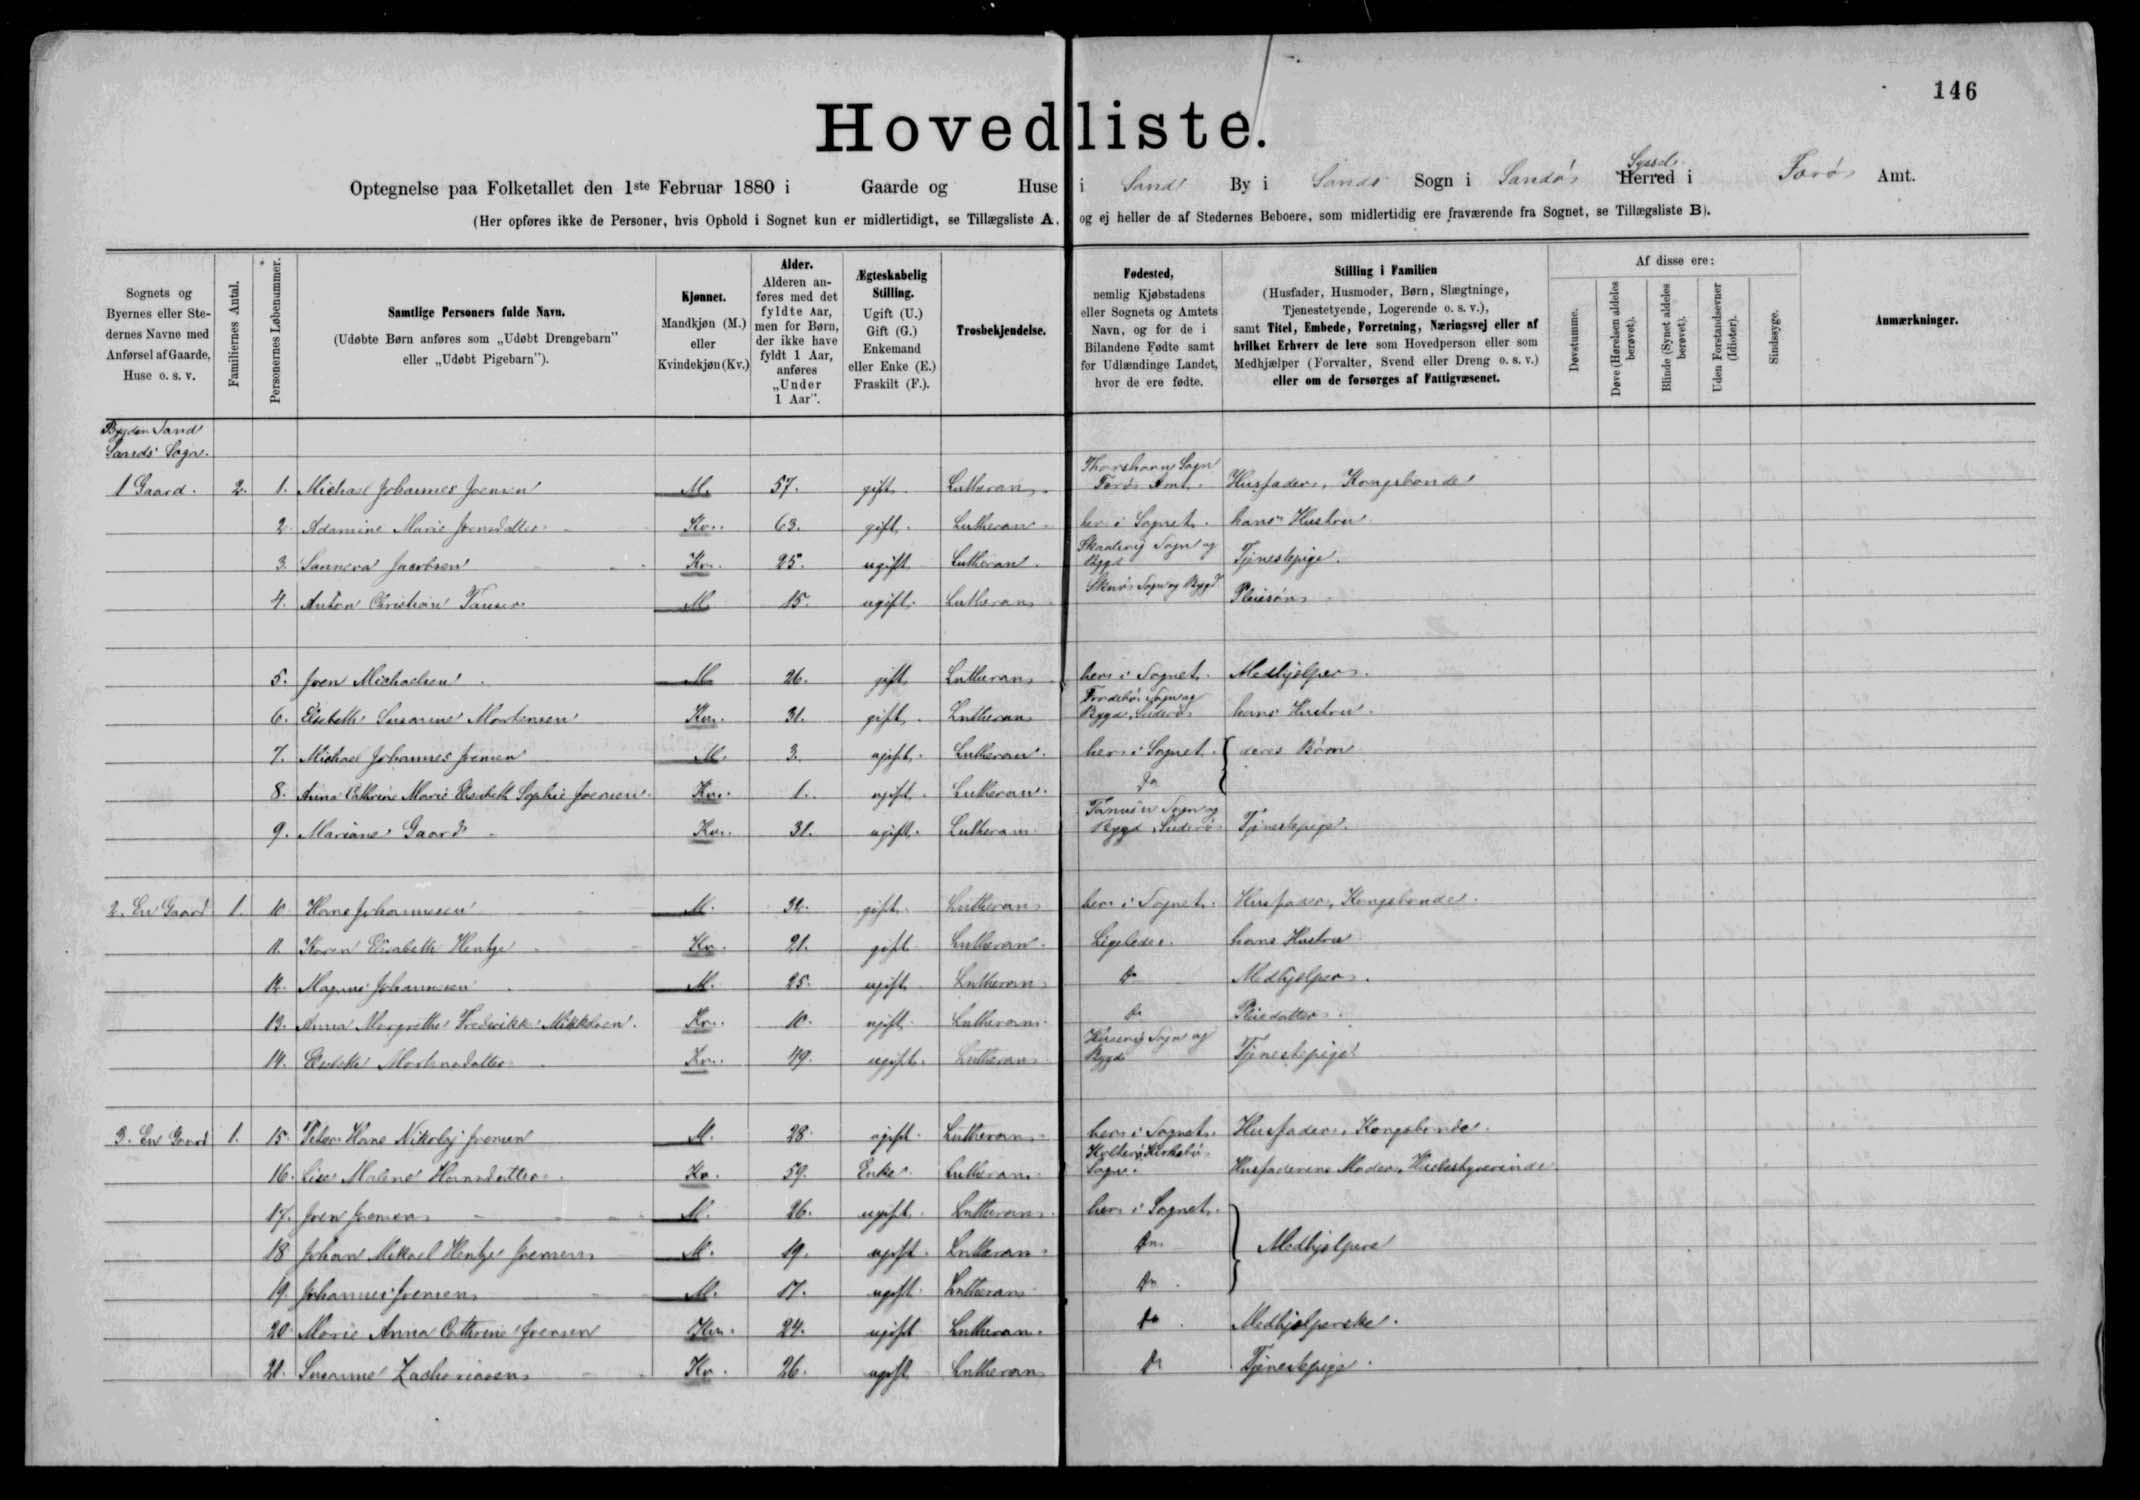 146
Hovedliste.
Optegnelse paa Folketallet den 1ste Februar 1880 i Gaarde og Huse i Sand By i Sands Sogn i Sandøs Syssel Herred i Færø Amt.
(Her opføres ikke de Personer, hvis Ophold i Sognet kun er midlertidigt, se Tillægsliste A. og ej heller de af Stedernes Beboere, som midlertidig ere fraværende fra Sognet, se Tillægsliste B).
Sognets og Byernes eller Stedernes Navne med Anførsel af Gaarde, Huse o. s. v.
Familiernes Antal.
Personernes Løbenummer.
Samtlige Personers fulde Navn.
(Udøbte Børn anføres som „Udøbt Drengebarn" eller „Udøbt Pigebarn").
Kjønnet.
Mandkjøn (M.) eller Kvindekjøn (Kv.)
Alder.
Alderen anføres med det fyldte Aar, men for Børn, der ikke have fyldt 1 Aar, anføres „Under 1 Aar".
Ægteskabelig Stilling.
Ugift (U.) Gift (G.) Enkemand eller Enke (E.) Fraskilt (F.).
Trosbekjendelse.
Fødested,
nemlig Kjøbstadens eller Sognets og Amtets Navn, og for de i Bilandene Fødte samt for Udlændinge Landet, hvor de ere fødte.
Stilling i Familien
(Husfader, Husmoder, Børn, Slægtninge, Tjenestetyende, Logerende o. s. v.), samt Titel, Embede, Forretning, Næringsvej eller af hvilket Erhverv de leve som Hovedperson eller som Medhjælper (Forvalter, Svend eller Dreng o. s. v.) eller om de forsørges af Fattigvæsenet.
Af disse ere:
Døvstumme.
Døve (Hørelsen aldeles berøvet).
Blinde (Synet aldeles berøvet).
Uden Forstandsevner (Idioter).
Sindssyge.
Anmærkninger.
Bygden Sand
Sands Sogn.
1 Gaard. 2. 1. Michael Johannes Joensen M. 57. gift. Lutheran. Thorshavn Sogn Færø Amt. Husfader, Kongsbonde
2. Adamine Marie Joensdatter Kv. 63. gift. Lutheran. her i Sognet. hans Hustru
3. Sanneva Jacobsen Kv. 25. ugift Lutheran. Skaalevig Sogn og Bygd Tjenestepige.
4. Anton Christian M. 15. ugift. Lutheran Sogn og Bygd Pleiesøn
5. Joen Michaelsen M. 26. gift Lutheran her i Sognet. Medhjelper.
6. Elsebeth Susanne Mortensen Kv. 31. gift. Lutheran Frodebø Sogn og Bygd, Suderø hans Hustru.
7. Michael Johannes Joensen M. 3. ugift. Lutheran. her i Sognet. deres Børn
8. Anna Cathrine Marie Elsebeth Sophie Joensen. Kv. 1. ugift. Lutheran. Do
9. Mariane Gaard Kv. 31. ugift. Lutheran Sogn og Bygd, Suderø Tjenestepige.
2. En Gaard 1. 10 Hans Johannesen M. gift. Lutheran her i Sognet. Husfader, Kongsbonde.
11. Karen Elisabeth Hentze Kv. 21. gift Lutheran. Ligeledes. hans Hustru
12. Magnus Johannesen M. 25. ugift Lutheran Do Medhjelper.
13. Anna Margrethe Frederikke Mikkelsen. Kv. 10. ugift Lutheran. Do Pleiedatter
14. Elsebeth Mortensdatter Kv. 49. ugift. Lutheran Husevig Sogn og Bygd Tjenestepige
3. En Gaard 1. 15. Peter Hans Nikolaj Joensen M. 28. ugift. Lutheran her i Sognet. Husfader, Kongsbonde.
16. Lise Malene Hansdatter. Kv. 59. Enke Lutheran Kirkebø Sogn. Husfaderens Moder, Husbestyrerinde
17. Joen Joensen M. 26. ugift. Lutheran her i Sognet.
18 Johan Mikael Hentze Joensen M. 19. ugift. Lutheran. Do. Medhjelpere
19. Johannes Joensen M. 17. ugift. Lutheran Do.
20 Marie Anna Cathrine Joensen Kv. 24. ugift Lutheran. Do. Medhjelperske.
21. Susanne Zachariasen Kv. 26. ugift Lutheran Do Tjenestepige.